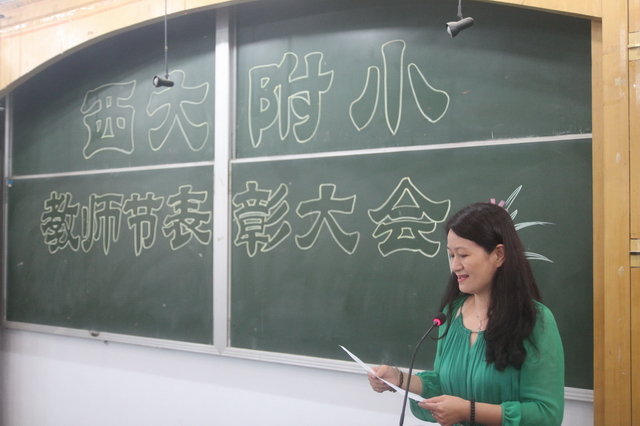 西大附小
教师节表彰大会